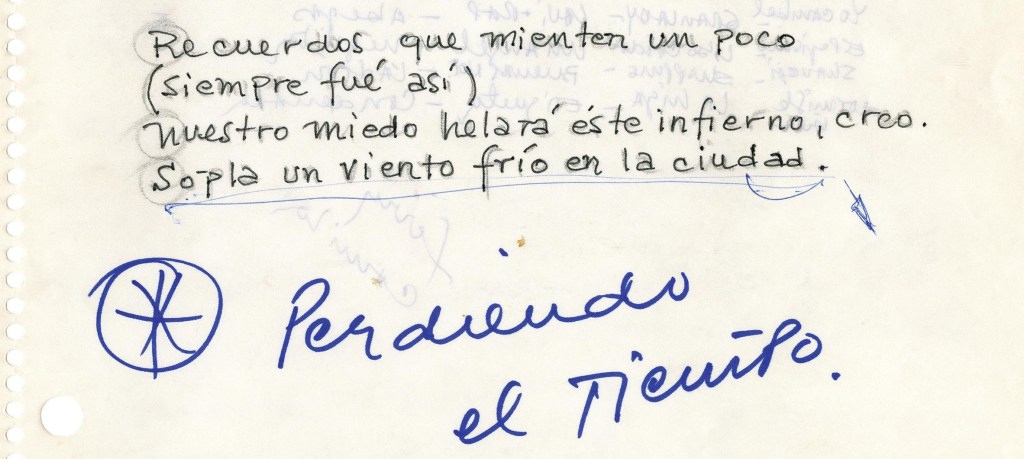 Recuerdos que mienten un poco
(siempre fué así)
nuestro miedo helará éste infierno, creo.
Sopla un viento frío en la ciudad.
Perdiendo
el Tiempo.